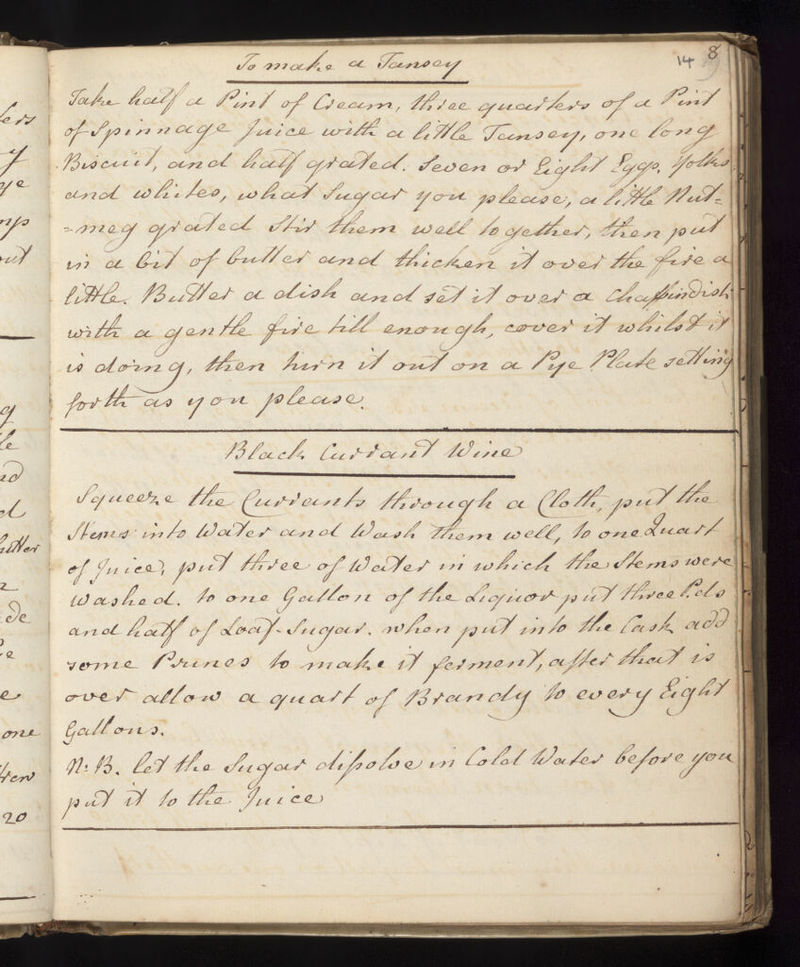 14 8
To make a Tansey
Take half a Pint of Cream, three quarters of a Pint
of Spinnage Juice with a little Tansey, one long
Biscuit, and half grated. Seven or Eight Eggs, Yolks
and whites, what Sugar you please, a little Nut=
=meg grated Stir them well together, then put
in a bit of butter and thicken it over the fire a
little. Butter a dish and set it over a Chaffindish
with a gentle fire till enough, cover it whilst it
is doing, then turn it out on a Pye Plate setting
forth as you please.
Black Currant Wine
Squeeze the Currants through a Cloth, put the
Stems into Water and Wash them well, to one Quart
of Juice, put three of Water in which the Stems were
Washed. to one Gallon of the Liquor put three Pds
and half of Loaf-Sugar. when put into the Cask add
some Prunes to make it ferment, after that is
over allow a quart of Brandy to every Eight
Gallons.
N:B. let the Sugar dissolve in Cold Water before you
put it to the Juice
one
20